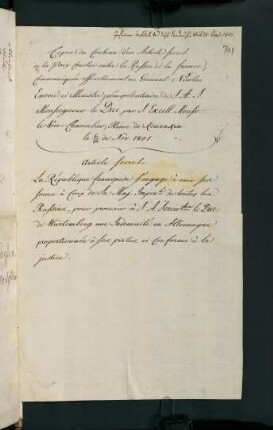 761
Copie du Contenu d'un Article secret
de la Paix conclue entre la Russie et la france,
Communiquée officiellement au Général de Nicolai
Envoié et Ministre plénipotentiaire de S. A. S.
Monseigneur le Duc, par S. Excell. Monsr
le Vice Chancelier, Prince de Kourakin
le de Nov. 1801.
Article secret.
La République française s'engage à unir ses
soins à ceux de Sa Maj. Imperle de toutes les
Russies, pour procurer à S. A. Serenme le Duc
de Würtemberg une Indemnité en Allemagne
proportionnée à ses pertes et conforme à la
justice.